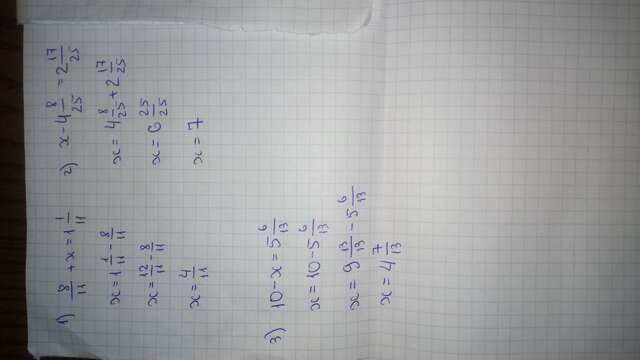 1) 8/11 + x = 1 1/11
x = 1 1/11 - 8/11
x = 12/11 - 8/11
x = 4/11
2) x - 4 8/25 = 2 17/25
x = 4 8/25 + 2 17/25
x = 6 25/25
x = 7
3) 10 - x = 5 6/13
x = 10 - 5 6/13
x = 9 13/13 - 5 6/13
x = 4 7/13